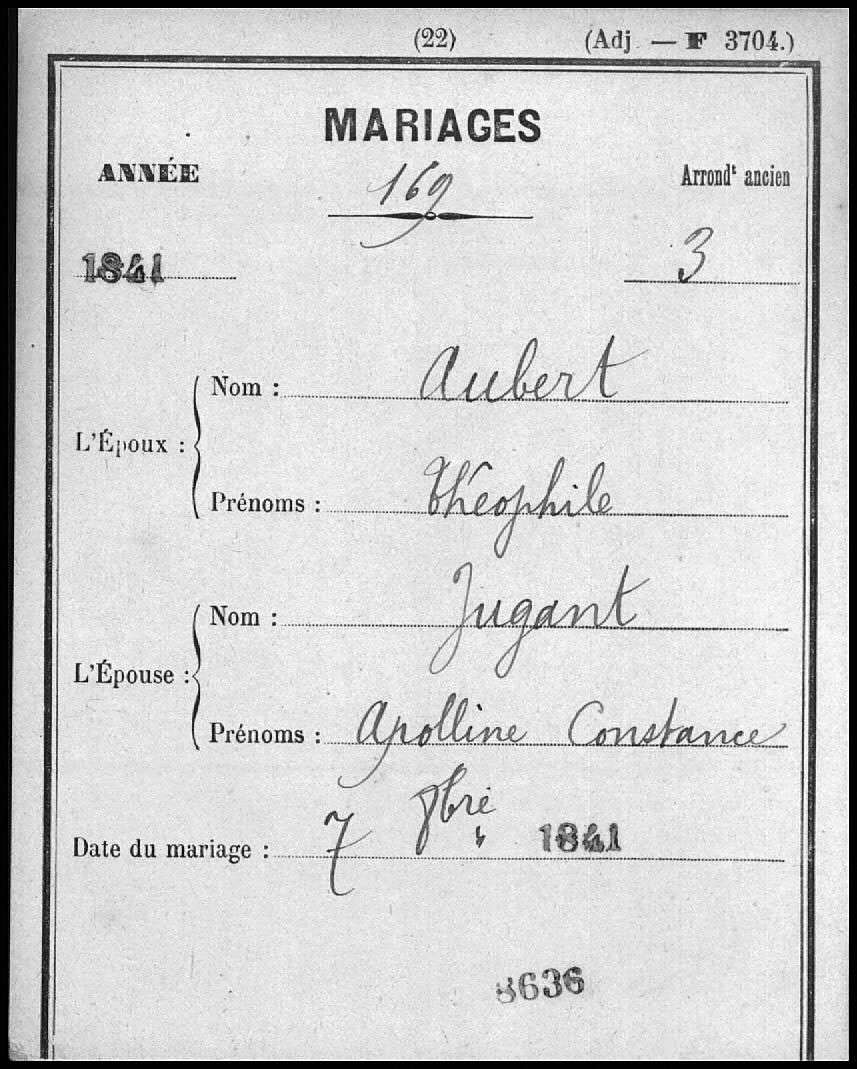 (22) (Adj. — F 3704.)
MARIAGES
ANNÉE 169 Arrondt ancien
1841 3
Nom : Aubert
L'Époux :
Prénoms : Théophile
Nom : Jugant
L'Épouse :
Prénoms : Apolline Constance
Date du mariage : 7 8bre 1841
8636